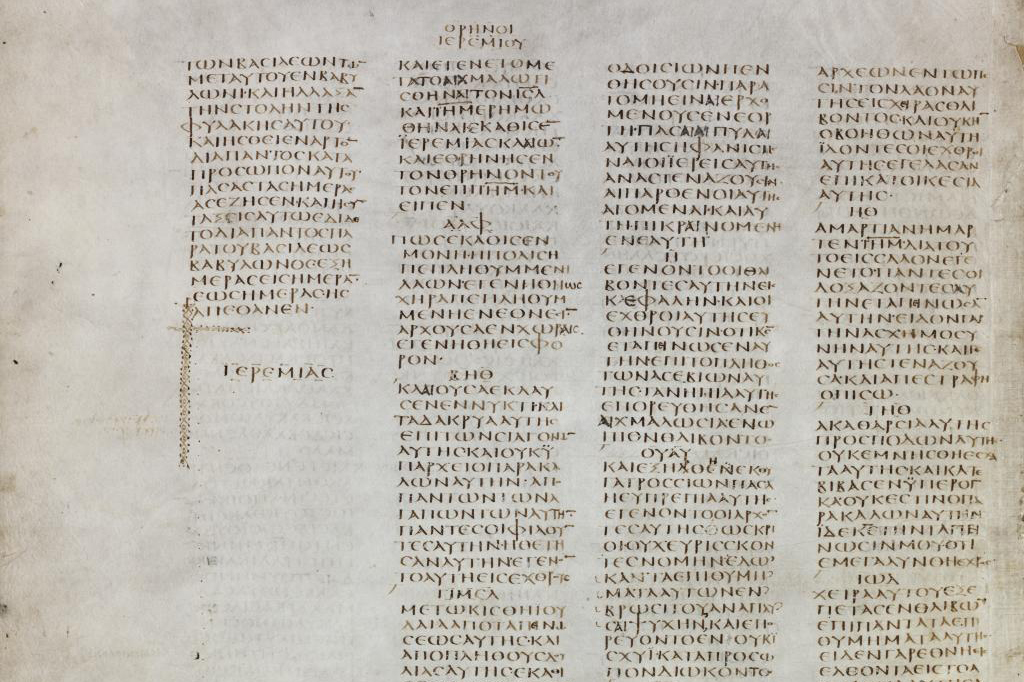 ΘΡΗΝΟΙ
ΙΕΡΕΜΙΟΥ
ΤΩΝΒΑΣΙΛΕΩΝΤΩ
ΜΕΤΑΥΤΟΥΕΝΒΑΒΥ
ΛΩΝΙ·ΚΑΙΗΛΛΑΞΑ
ΤΗΝΣΤΟΛΗΝΤΗΣ
ΦΥΛΑΚΗΣΑΥΤΟΥ·
ΚΑΙΗΣΘΙΕΝΑΡΤΟ
ΔΙΑΠΑΝΤΟΣΚΑΤΑ
ΠΡΟΣΩΠΟΝΑΥΤΟΥ·
ΠΑΣΑΣΤΑΣΗΜΕΡΑΣ
ΑΣΕΖΗΣΕΝ·ΚΑΙΗΣΥ
ΤΑΞΕΙΣΑΥΤΩΕΔΙΔΟ
ΤΟΔΙΑΠΑΝΤΟΣΠΑ
ΡΑΤΟΥΒΑΣΙΛΕΩΣ
ΒΑΒΥΛΩΝΟΣΕΞΗ
ΜΕΡΑΣΕΙΣΗΜΕΡΑ·
ΕΩΣΗΜΕΡΑΣΗΣ
ΑΠΕΘΑΝΕΝ·
ΙΕΡΕΜΙΑΣ
ΚΑΙΕΓΕΝΕΤΟΜΕ
ΤΑΤΟΑΙΧΜΑΛΩΤΙ
ΣΘΗΝΑΙΤΟΝΙΣΛ
ΚΑΙΙΗΜΕΡΗΜΩ
ΘΗΝΑΙ·ΕΚΑΘΙΣΕ
ΙΕΡΕΜΙΑΣΚΛΑΙΩ
ΚΑΙΕΘΡΗΝΗΣΕΝ
ΤΟΝΘΡΗΝΟΝΤΟΥ
ΤΟΝΕΠΙΙΗΜ·ΚΑΙ
ΕΙΠΕΝ
ΑΛΦ
ΠΩΣΕΚΑΘΙΣΕΝ
ΜΟΝΗΗΠΟΛΙΣΗ
ΠΕΠΛΗΘΥΜΜΕΝΗ
ΛΑΩΝ·ΕΓΕΝΗΘΗΩΣ
ΧΗΡΑΠΕΠΛΗΘΥΜ
ΜΕΝΗΕΝΕΘΝΕΣΙ
ΑΡΧΟΥΣΑΕΝΧΩΡΑΙΣ
ΕΓΕΝΗΘΗΕΙΣΦΟ
ΡΟΝ·
ΒΗΘ
ΚΛΑΙΟΥΣΑΕΚΛΑΥ
ΣΕΝΕΝΝΥΚΤΙ·ΚΑΙ
ΤΑΔΑΚΡΥΑΑΥΤΗΣ
ΕΠΙΤΩΝΣΙΑΓΟΝΩ
ΑΥΤΗΣΚΑΙΟΥΚΥ
ΠΑΡΧΕΙΟΠΑΡΑΚΑ
ΛΩΝΑΥΤΗΝ·ΑΠΟ
ΠΑΝΤΩΝΤΩΝΑ
ΓΑΠΩΝΤΩΝΑΥΤΗ
ΠΑΝΤΕΣΟΙΦΙΛΟΥ
ΤΕΣΑΥΤΗΝ·ΗΘΕΤΗ
ΣΑΝΑΥΤΗΝΕΓΕΝ
ΤΟΑΥΤΗΕΙΣΕΧΘΡΟΥΣ
ΓΙΜΕΛ
ΜΕΤΩΚΙΣΘΗΙΟΥ
ΔΑΙΑΑΠΟΤΑΠΕΙΝ
ΣΕΩΣΑΥΤΗΣ·ΚΑΙ
ΑΠΟΠΛΗΘΟΥΣΔΟΥ
ΛΙΑΣΑΥΤΗΣ·ΕΚΑΘΙ
ΟΔΟΙΣΙΩΝΠΕΝ
ΘΗΣΟΥΣΙΝ·ΠΑΡΑ
ΤΟΜΗΕΙΝΑΙΕΡΧΟ
ΜΕΝΟΥΣΕΝΕΟΡ
ΤΗ·ΠΑΣΑΙΑΙΠΥΛΑΙ
ΑΥΤΗΣΗΦΑΝΙΣΜΕ
ΝΑΙΟΙΙΕΡΕΙΣΑΥΤΗΣ
ΑΝΑΣΤΕΝΑΖΟΥΣΙΝ·
ΑΙΠΑΡΘΕΝΟΙΑΥΤΗΣ
ΑΓΟΜΕΝΑΙ·ΚΑΙΑΥ
ΤΗΠΙΚΡΑΙΝΟΜΕΝΗ
ΕΝΕΑΥΤΗ
Η
ΕΓΕΝΟΝΤΟΟΙΘΛΙ
ΒΟΝΤΕΣΑΥΤΗΝΕΙΣ
ΚΕΦΑΛΗΝ·ΚΑΙΟΙ
ΕΧΘΡΟΙΑΥΤΗΣΕΥ
ΘΗΝΟΥΣΙΝ·ΟΤΙΚΣ
ΕΤΑΠΙΝΩΣΕΝΑΥ
ΤΗΝΕΠΙΤΟΠΛΗΘΟΣ
ΤΩΝΑΣΕΒΙΩΝΑΥ
ΤΗΣ·ΤΑΝΗΠΙΑΑΥΤΗΣ
ΕΠΟΡΕΥΘΗΣΑΝΕ
ΑΙΧΜΑΛΩΣΙΑΕΝΩ
ΠΙΟΝΘΛΙΒΟΝΤΟΣ
ΟΥΑΥ
ΚΑΙΕΞΗΛΘΕΝΕΚΘΥ
ΓΑΤΡΟΣΣΙΩΝΠΑΣΑ
ΗΕΥΠΡΕΠΙΑΑΥΤΗΣ·
ΕΓΕΝΟΝΤΟΟΙΑΡΧΟ
ΤΕΣΑΥΤΗΣΩΣΚΡΙ
ΟΙΟΥΧΕΥΡΙΣΚΟΝ
ΤΕΣΝΟΜΗΝ
ΚΑΝΤΑΕΠΙΘΥΜΗ
ΜΑΤΑΑΥΤΩΝΕΝ
ΒΡΩΣΙΤΟΥΑΝΑΨΥ
ΞΑΙΨΥΧΗΝ·ΚΑΙΕΠΟ
ΡΕΥΟΝΤΟΕΝΟΥΚΙ
ΣΧΥΙΚΑΤΑΠΡΟΣΩ
ΠΟΝΔΙΩΚΟΝΤΟΣ
ΑΡΧΕΩΝΕΝΤΩΠΕ
ΣΙΝΤΟΝΛΑΟΝΑΥ
ΤΗΣΕΙΣΧΕΙΡΑΣΘΛΙ
ΒΟΝΤΟΣ·ΚΑΙΟΥΚΗ
ΟΒΟΗΘΩΝΑΥΤΗ
ΙΔΟΝΤΕΣΟΙΕΧΘΡΟΙ
ΑΥΤΗΣΕΓΕΛΑΣΑΝ
ΕΠΙΚΑΤΟΙΚΕΣΙΑ
ΑΥΤΗΣ·
ΗΘ
ΑΜΑΡΤΙΑΝΗΜΑΡ
ΤΕΝΙΗΜ·ΔΙΑΤΟΥ
ΤΟΕΙΣΣΑΛΟΝΕΓΕ
ΝΕΤΟΠΑΝΤΕΣΟΙ
ΔΟΞΑΖΟΝΤΕΣΑΥ
ΤΗΝΕΤΑΠΙΝΩΣΑ
ΑΥΤΗΝΕΙΔΟΝΓΑΡ
ΤΗΝΑΣΧΗΜΟΣΥ
ΝΗΝΑΥΤΗΣ·ΚΑΙΗ
ΑΥΤΗΣΤΕΝΑΖΟΥ
ΣΑΚΑΙΑΠΕΣΤΡΑΦΗ
ΟΠΙΣΩ·
ΤΗΘ
ΑΚΑΘΑΡΣΙΑΑΥΤΗΣ
ΠΡΟΣΠΟΔΩΝΑΥΤΗΣ
ΟΥΚΕΜΝΗΣΘΗΕΣΧΑ
ΤΑΑΥΤΗΣΚΑΙΚΑΤΕ
ΒΙΒΑΣΕΝΥΠΕΡΟΓ
ΚΑΟΥΚΕΣΤΙΝΟΠΑ
ΡΑΚΑΛΩΝΑΥΤΗΝ
ΙΔΕΚΕΤΗΝΤΑΠΕΙ
ΝΩΣΙΝΜΟΥΟΤΙ
ΕΜΕΓΑΛΥΝΘΗΕΧΘΡΟΣ
ΙΩΔ
ΧΕΙΡΑΑΥΤΟΥΕΞΕ
ΠΕΤΑΣΕΝΘΛΙΒΩ
ΕΠΙΠΑΝΤΑΤΑΕΠΙ
ΘΥΜΗΜΑΤΑΑΥΤΗΣ
ΕΙΔΕΝΓΑΡΕΘΝΗ
ΕΛΘΟΝΤΑΕΙΣΤΟΑ